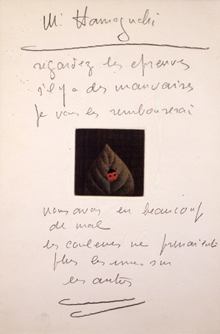 M. Hamaguchi
regardez les epreuves
s'il y a des mauvaises
je vous les rembourserai
nous avons eu beaucoup
de mal
les couleurs ne prenaient
plus les unes sur
les autres